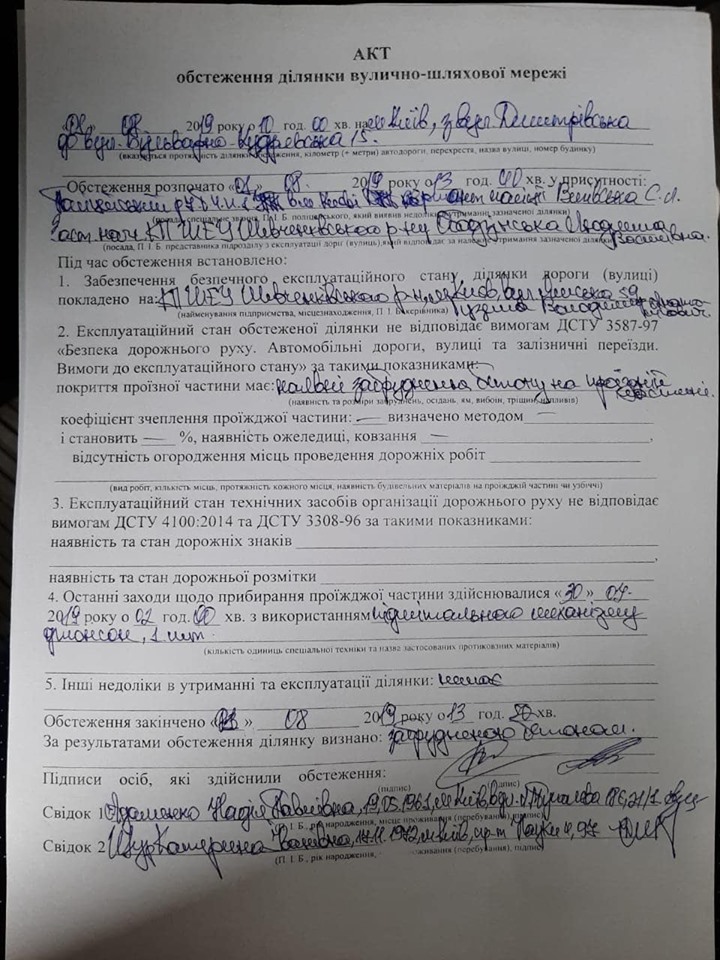 АКТ
обстеження ділянки вулично-шляхової мережі
08 2019 року о 10 год. 00 хв. на м. Київ, з вул. Дмитрівська
до вул. Бульварно-Кудрявська
(вказується протяжність ділянки, кілометр (+ метри) автодороги, перехрестя, назва вулиці, номер будинку)
Обстеження розпочато « » 08. 2019 року о 13 год. 00 хв. у присутності:
С. А.
(посада, спеціальне звання, П. І. Б. поліцейського, який виявив недоліки в утриманні зазначеної ділянки)
Заст. нач. КП ШЕУ Шевченківського р-ну Людмила
(посада, П. І. Б. представника підрозділу з експлуатації доріг (вулиць), який відповідає за належне утримання зазначеної ділянки)
Під час обстеження встановлено:
1. Забезпечення безпечного експлуатаційного стану ділянки дороги (вулиці)
покладено на: КП ШЕУ Шевченківського р-ну, м. Київ, 59
(найменування підприємства, місцезнаходження, П. І. Б. керівника) Володимир
2. Експлуатаційний стан обстеженої ділянки не відповідає вимогам ДСТУ 3587-97
«Безпека дорожнього руху. Автомобільні дороги, вулиці та залізничні переїзди.
Вимоги до експлуатаційного стану» за такими показниками:
покриття проїзної частини має: наявне забруднення бетону на проїзній частині.
(наявність та розміри забруднень, осідань, ям, вибоїн, тріщин, напливів)
коефіцієнт зчеплення проїжджої частини: — визначено методом —
і становить — %, наявність ожеледиці, ковзання —,
відсутність огородження місць проведення дорожніх робіт
(вид робіт, кількість місць, протяжність кожного місця, наявність будівельних матеріалів на проїжджій частині чи узбіччі)
3. Експлуатаційний стан технічних засобів організації дорожнього руху не відповідає
вимогам ДСТУ 4100:2014 та ДСТУ 3308-96 за такими показниками:
наявність та стан дорожніх знаків
наявність та стан дорожньої розмітки
4. Останні заходи щодо прибирання проїжджої частини здійснювалися «30» 07
2019 року о 02 год. 00 хв. з використанням підмітального механізму
Джонсон, 1 шт.
(кількість одиниць спеціальної техніки та назва застосованих протиковзних матеріалів)
5. Інші недоліки в утриманні та експлуатації ділянки: немає
Обстеження закінчено « » 08 2019 року о 13 год. 20 хв.
За результатами обстеження ділянку визнано: забрудненою бетоном.
Підписи осіб, які здійснили обстеження:
(підпис) (підпис)
Свідок 1 Надія Павлівна, 19.05.1961, м. Київ, вул.
(П. І. Б., рік народження, місце проживання (перебування), підпис)
Свідок 2 Катерина Іванівна, 17.11.1972, м. Київ, пр-т Науки
(П. І. Б., рік народження, проживання (перебування), підпис)